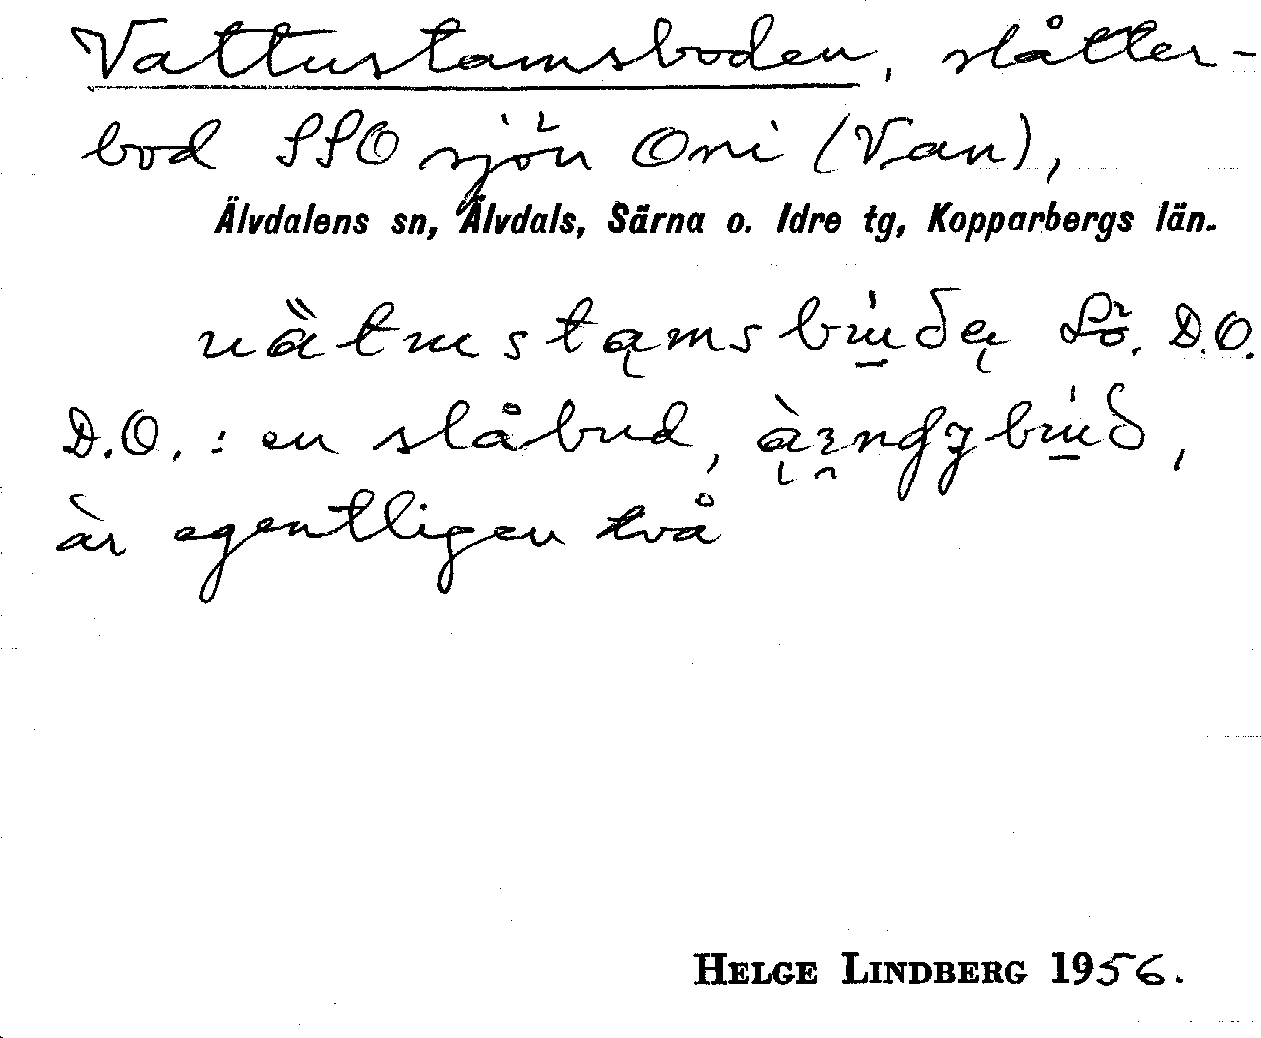 Vattustamsboden, slåtter-
bod SSO sjön Oni (Van),
Älvdalens sn, Älvdals, Särna o. Idre tg, Kopparbergs län.
D.O.
D.O. : en slåbud,
är egentligen två
HELGE LINDBERG 1956.